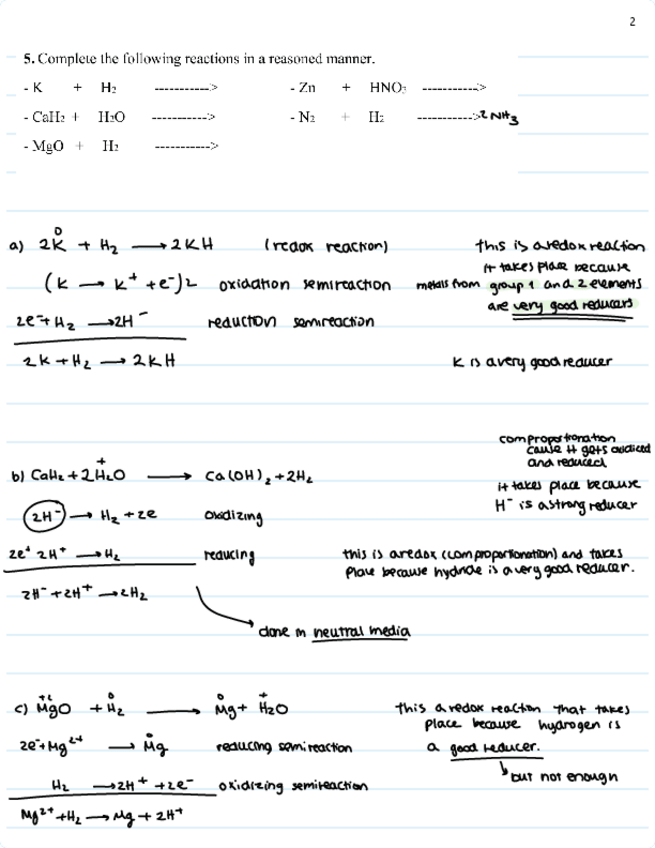 2
5. Complete the following reactions in a reasoned manner.
- K + H₂ ----------->
- Zn + HNO₃ ----------->
- CaH₂ + H₂O ----------->
- N₂ + H₂ -----------> 2 NH₃
- MgO + H₂ ----------->
a) 2K⁰ + H₂ → 2KH (redox reaction)
this is a redox reaction
it takes place because
(K → K⁺ + e⁻)2 oxidation semireaction
metals from group 1 and 2 elements
are very good reducers
2e⁻ + H₂ → 2H⁻ reduction semireaction
2K + H₂ → 2KH
K is a very good reducer
comproportionation
cause it gets oxidiced
and reduced
b) CaH₂ + 2H₂⁺O → Ca(OH)₂ + 2H₂
it takes place because
H⁻ is a strong reducer
2H⁻ → H₂ + 2e oxidizing
2e⁺ 2H⁺ → H₂ reducing
this is a redox (comproportionation) and takes
place because hydride is a very good reducer.
2H⁻ + 2H⁺ → 2H₂
done in neutral media
c) Mg⁺²O + H₂⁰ → Mg⁰ + H₂⁺O
this a redox reaction that takes
place because hydrogen is
2e⁻ + Mg²⁺ → Mg⁰ reducing semireaction
a good reducer.
but not enough
H₂ → 2H⁺ + 2e⁻ oxidizing semireaction
Mg²⁺ + H₂ → Mg + 2H⁺